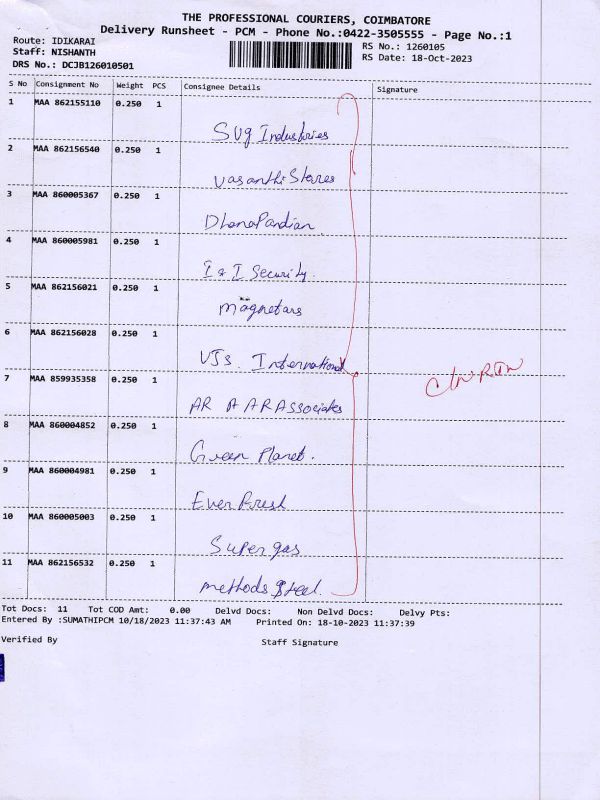 THE PROFESSIONAL COURIERS, COIMBATORE
Delivery Runsheet - PCM - Phone No.:0422-3505555 - Page No.:1
Route: IDIKARAI
Staff: NISHANTH
DRS No.: DCJB126010501
RS No.: 1260105
RS Date: 18-Oct-2023
S No Consignment No Weight PCS Consignee Details Signature
1 MAA 862155110 0.250 1
SVg Industries
2 MAA 862156540 0.250 1
Vasanthi Stores
3 MAA 860005367 0.250 1
DhanaPandian
4 MAA 860005981 0.250 1
I & I Security.
5 MAA 862156021 0.250 1
magnetars
6 MAA 862156028 0.250 1
VJs. International
7 MAA 859935358 0.250 1
AR A AR Associates
8 MAA 860004852 0.250 1
Green Planet.
9 MAA 860004981 0.250 1
Ever Fresh
10 MAA 860005003 0.250 1
Super gas
11 MAA 862156532 0.250 1
methods Steel.
Tot Docs: 11 Tot COD Amt: 0.00 Delvd Docs: Non Delvd Docs: Delvy Pts:
Entered By :SUMATHIPCM 10/18/2023 11:37:43 AM Printed On: 18-10-2023 11:37:39
Verified By Staff Signature